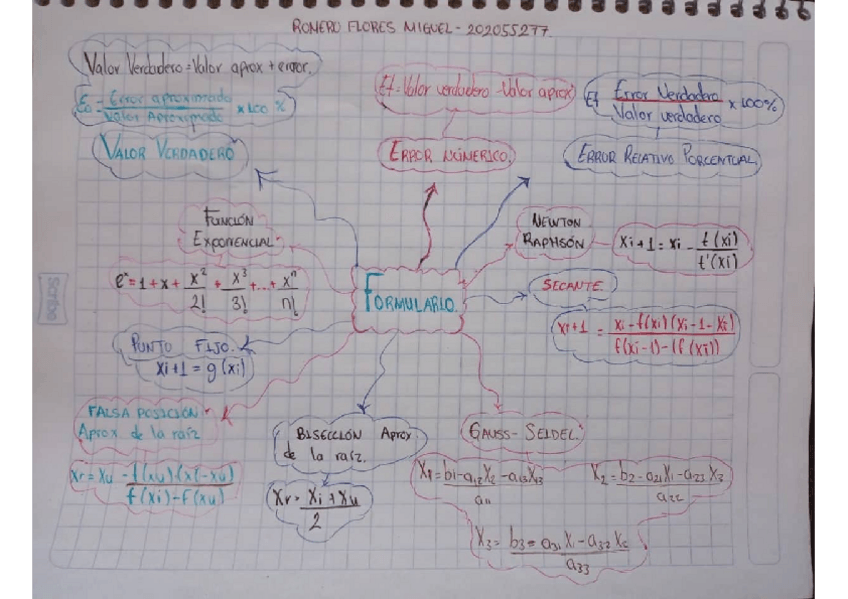 ROMERO FLORES MIGUEL - 202055277.
Valor Verdadero = Valor aprox + error.
Ea = Error aproximado / Valor Aproximado × 100 %
VALOR VERDADERO
Et = Valor verdadero - Valor aprox
ERROR NUMERICO.
Et Error Verdadero / Valor verdadero × 100%
ERROR RELATIVO PORCENTUAL.
FUNCIÓN
EXPONENCIAL
e^x = 1 + x + x^2/2! + x^3/3! + ... + x^n/n!
FORMULARIO.
NEWTON
RAPHSÓN
Xi+1 = Xi - f(xi) / f'(xi)
SECANTE
xi+1 = xi - f(xi) (Xi-1 - Xi) / f(xi-1) - (f(xi))
PUNTO FIJO.
Xi+1 = g(xi)
FALSA POSICIÓN
Aprox de la raíz
Xr = Xu - f(xu) (xi - xu) / f(xi) - f(xu)
BISECCIÓN Aprox
de la raíz.
Xr = Xi + Xu / 2
GAUSS - SEIDEL.
X1 = b1 - a12 X2 - a13 X3 / a11
X2 = b2 - a21 X1 - a23 X3 / a22
X3 = b3 = a31 X1 - a32 X2 / a33
Scribe